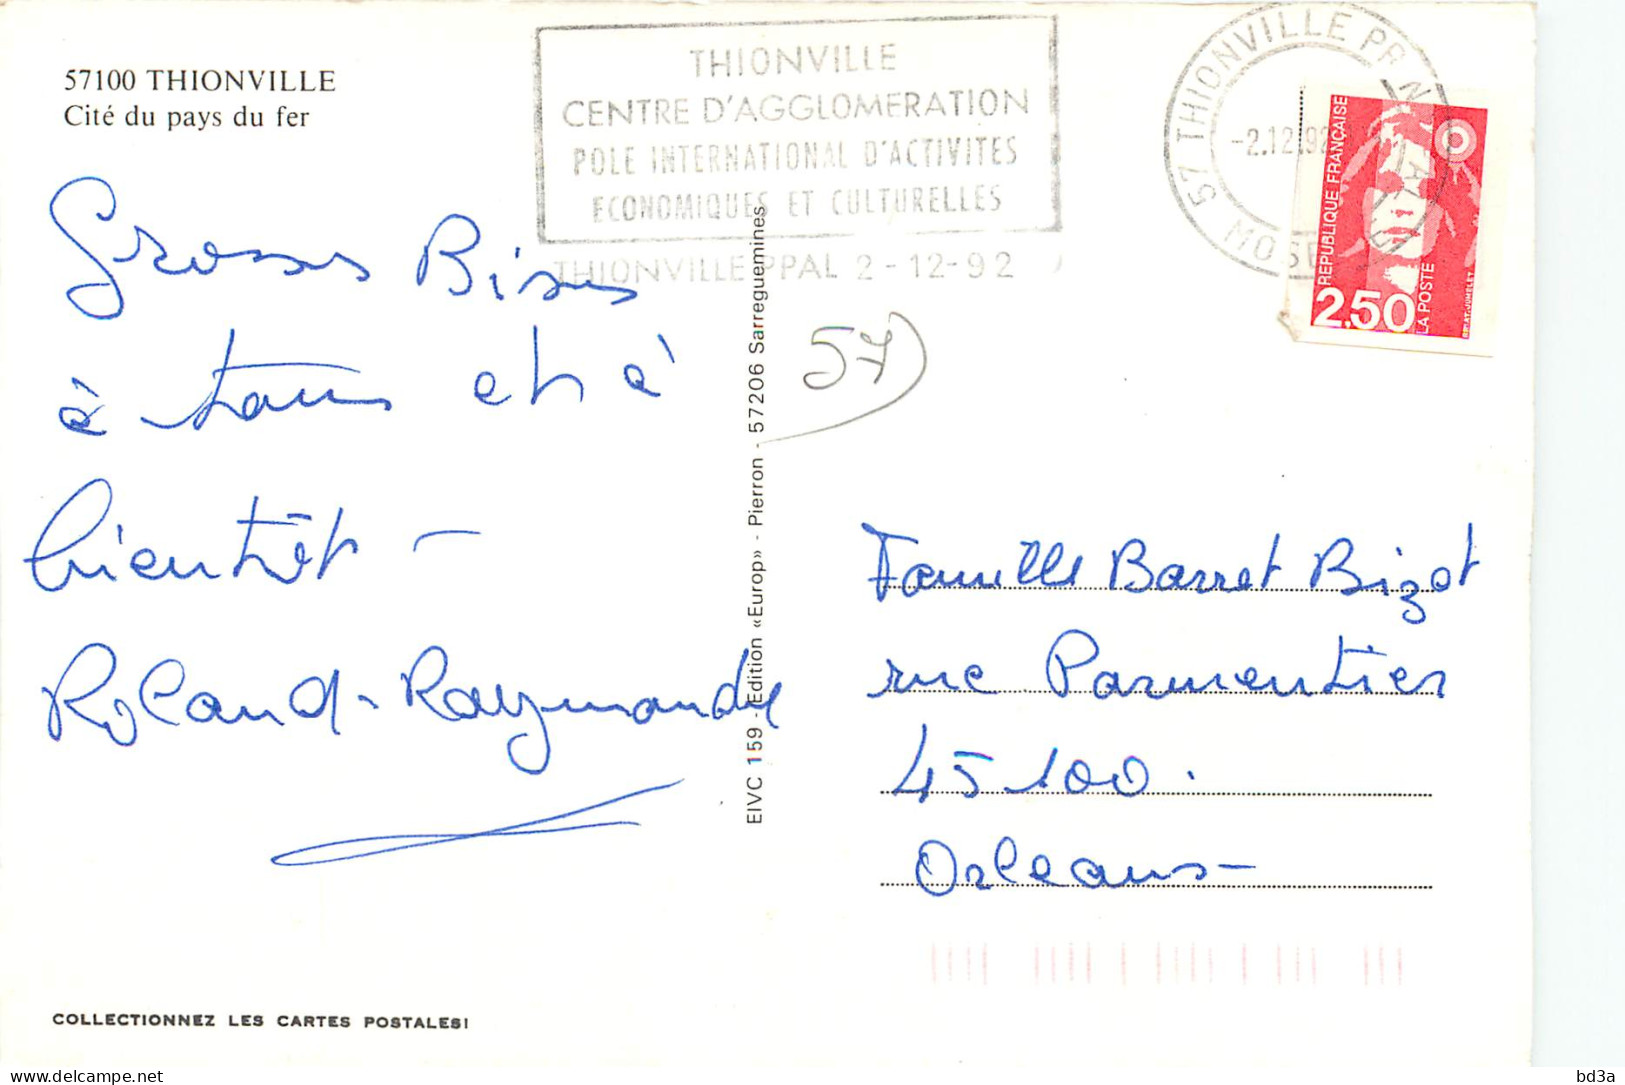 57100 THIONVILLE
Cité du pays du fer
THIONVILLE
CENTRE D'AGGLOMERATION
POLE INTERNATIONAL D'ACTIVITES
ECONOMIQUES ET CULTURELLES
THIONVILLE PPAL 2-12-92
57 THIONVILLE PRINCIPAL
-2.12.92
MOSELLE
REPUBLIQUE FRANÇAISE
2,50
LA POSTE
Grosses Bises
à tous et à
bientôt -
Roland - Raymonde
57
EIVC 159 - Edition «Europ» - Pierron - 57206 Sarreguemines
Famille Barret Bizot
rue Parmentier
45100.
Orleans -
COLLECTIONNEZ LES CARTES POSTALES!
delcampe.net
bd3a